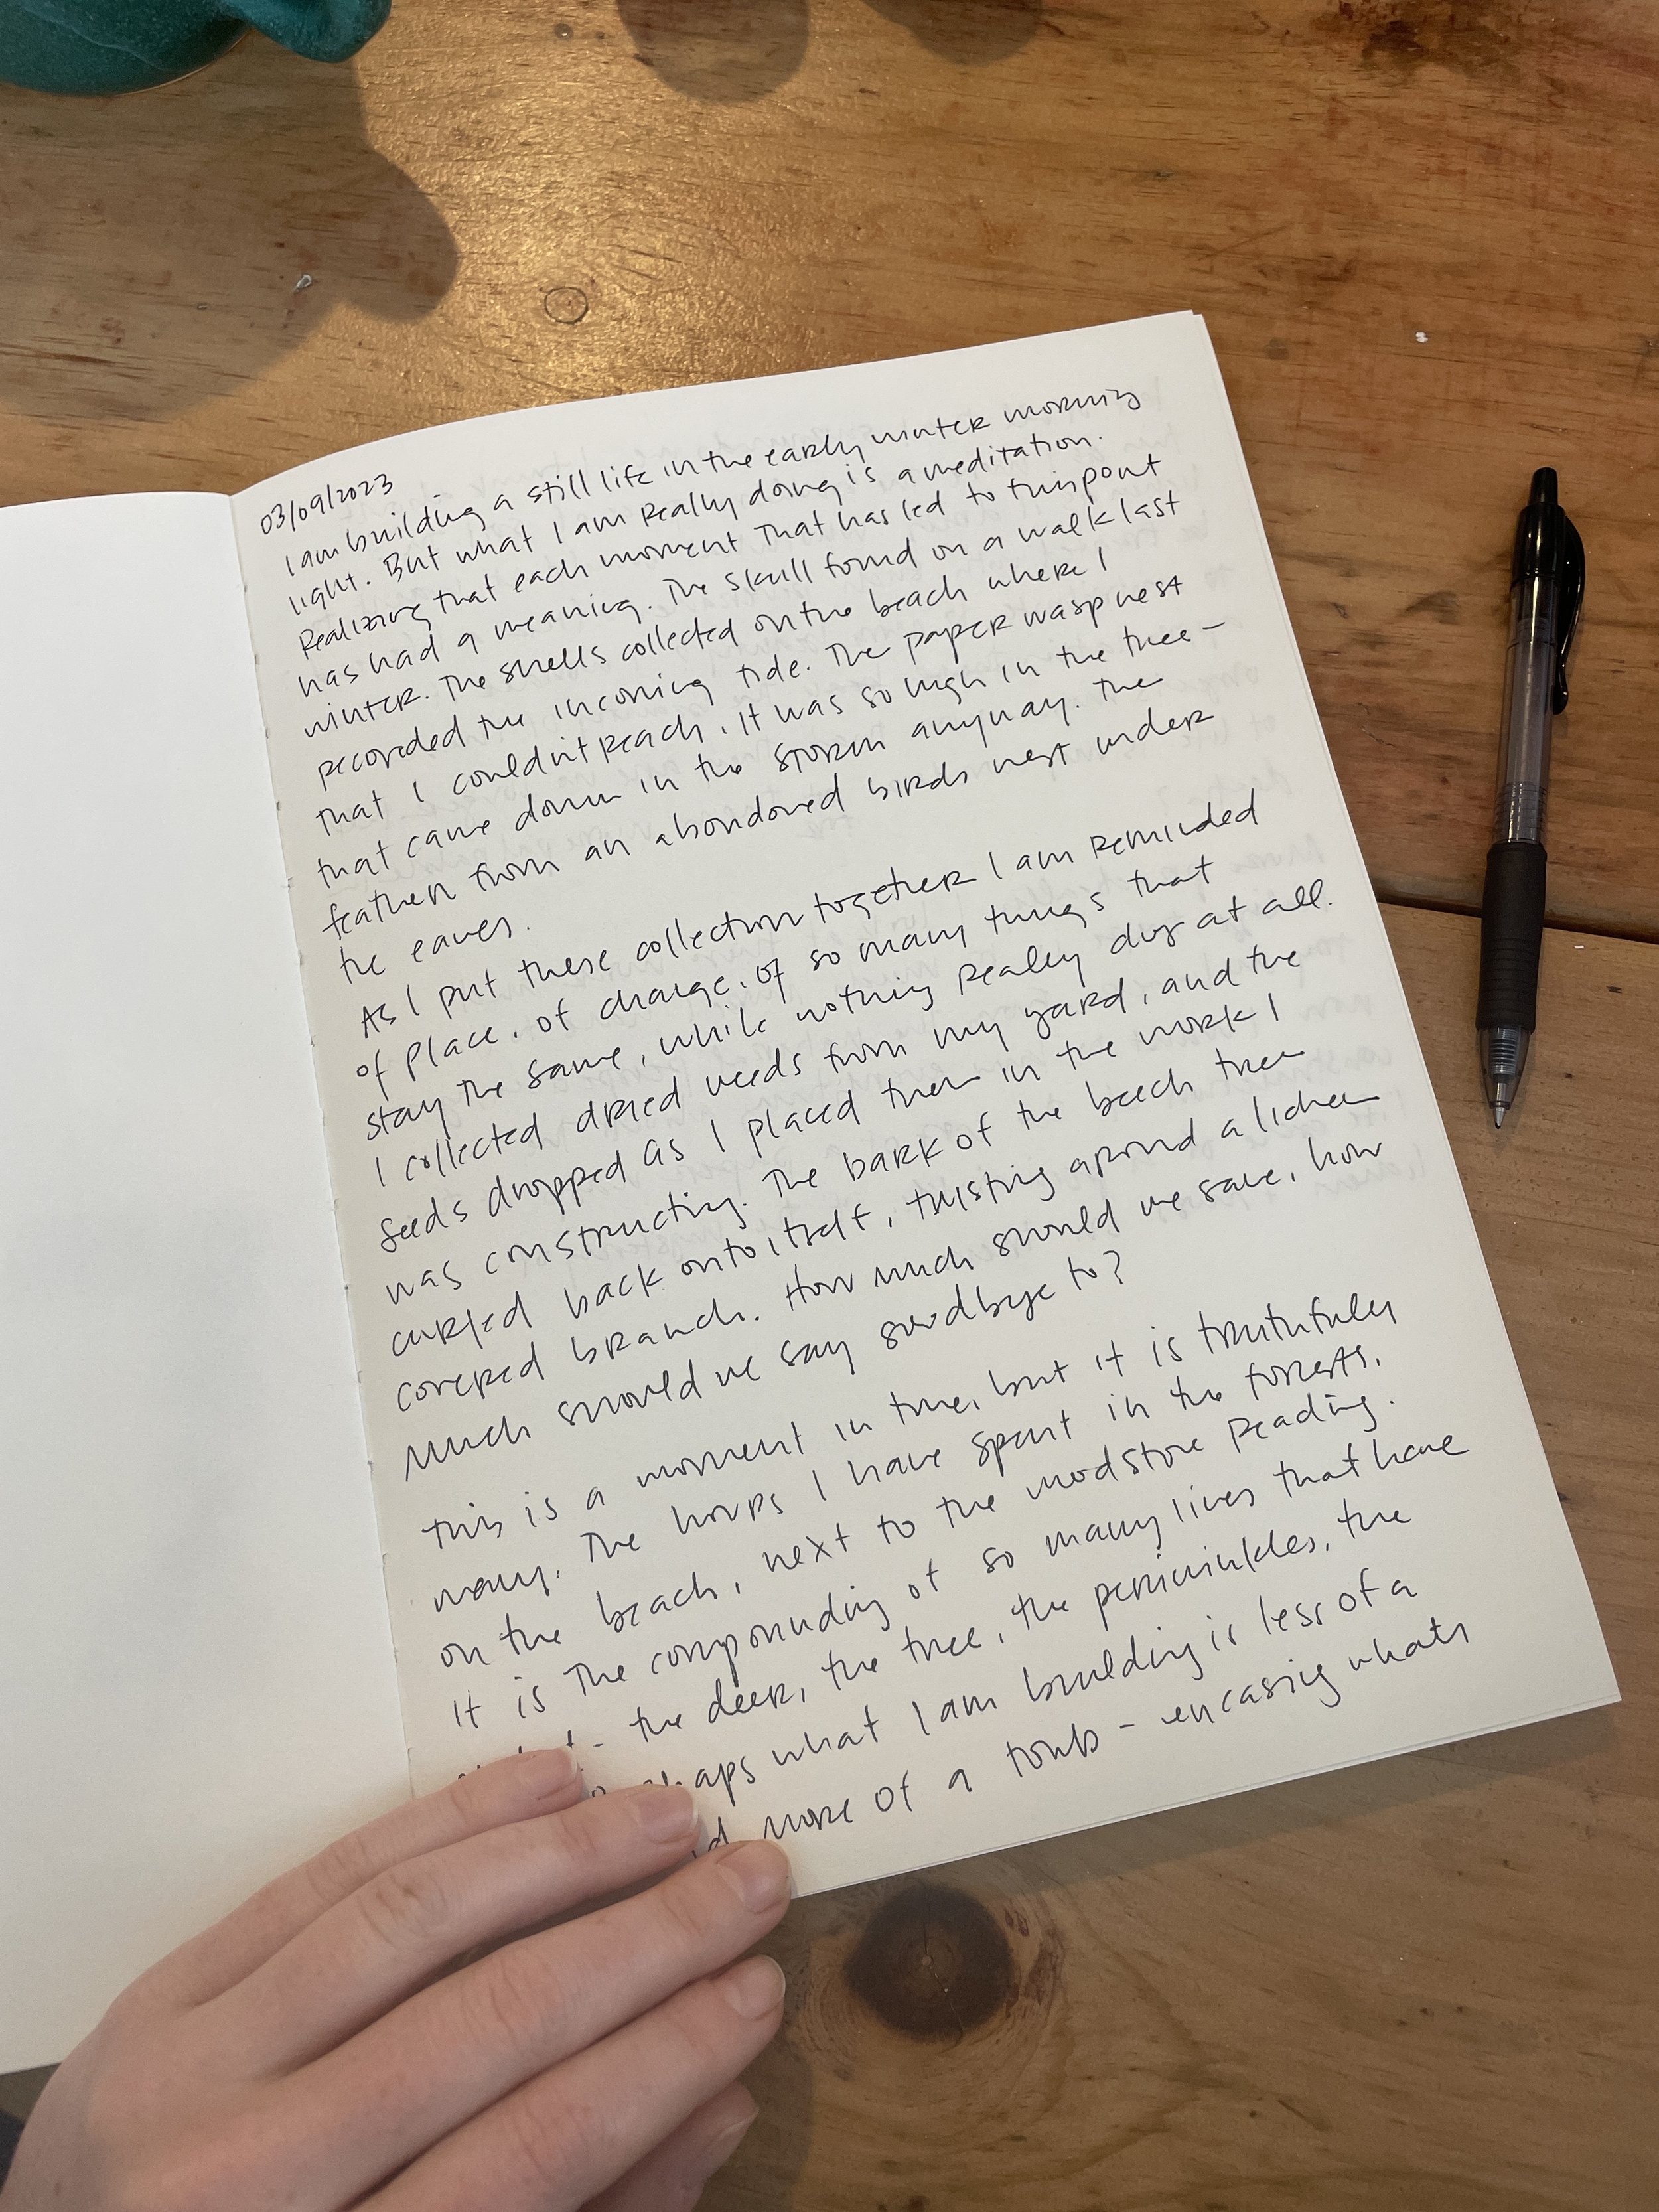 03/09/2023
I am building a still life in the early winter morning
light. But what I am really doing is a meditation.
Realizing that each moment that has led to this point
has had a meaning. The skull found on a walk last
winter. The shells collected on the beach where I
recorded the incoming tide. The paper wasp nest
that I couldn't reach, it was so high in the tree -
that came down in the storm anyway. The
feather from an abondoned birds nest under
the eaves.
As I put these collection together I am reminded
of place, of change, of so many things that
stay the same, while nothing really dies at all.
I collected dried weeds from my yard, and the
seeds dropped as I placed them in the work I
was constructing. The bark of the beech tree
curled back onto itself, twisting around a lichen
covered branch. How much should we save, how
much should we say goodbye to?
This is a moment in time, but it is truthfully
many. The hours I have spent in the forests,
on the beach, next to the woodstove reading.
It is the compounding of so many lives that have
- the deer, the tree, the periwinkles, the
what I am building is less of a
more of a tomb - encasing whats